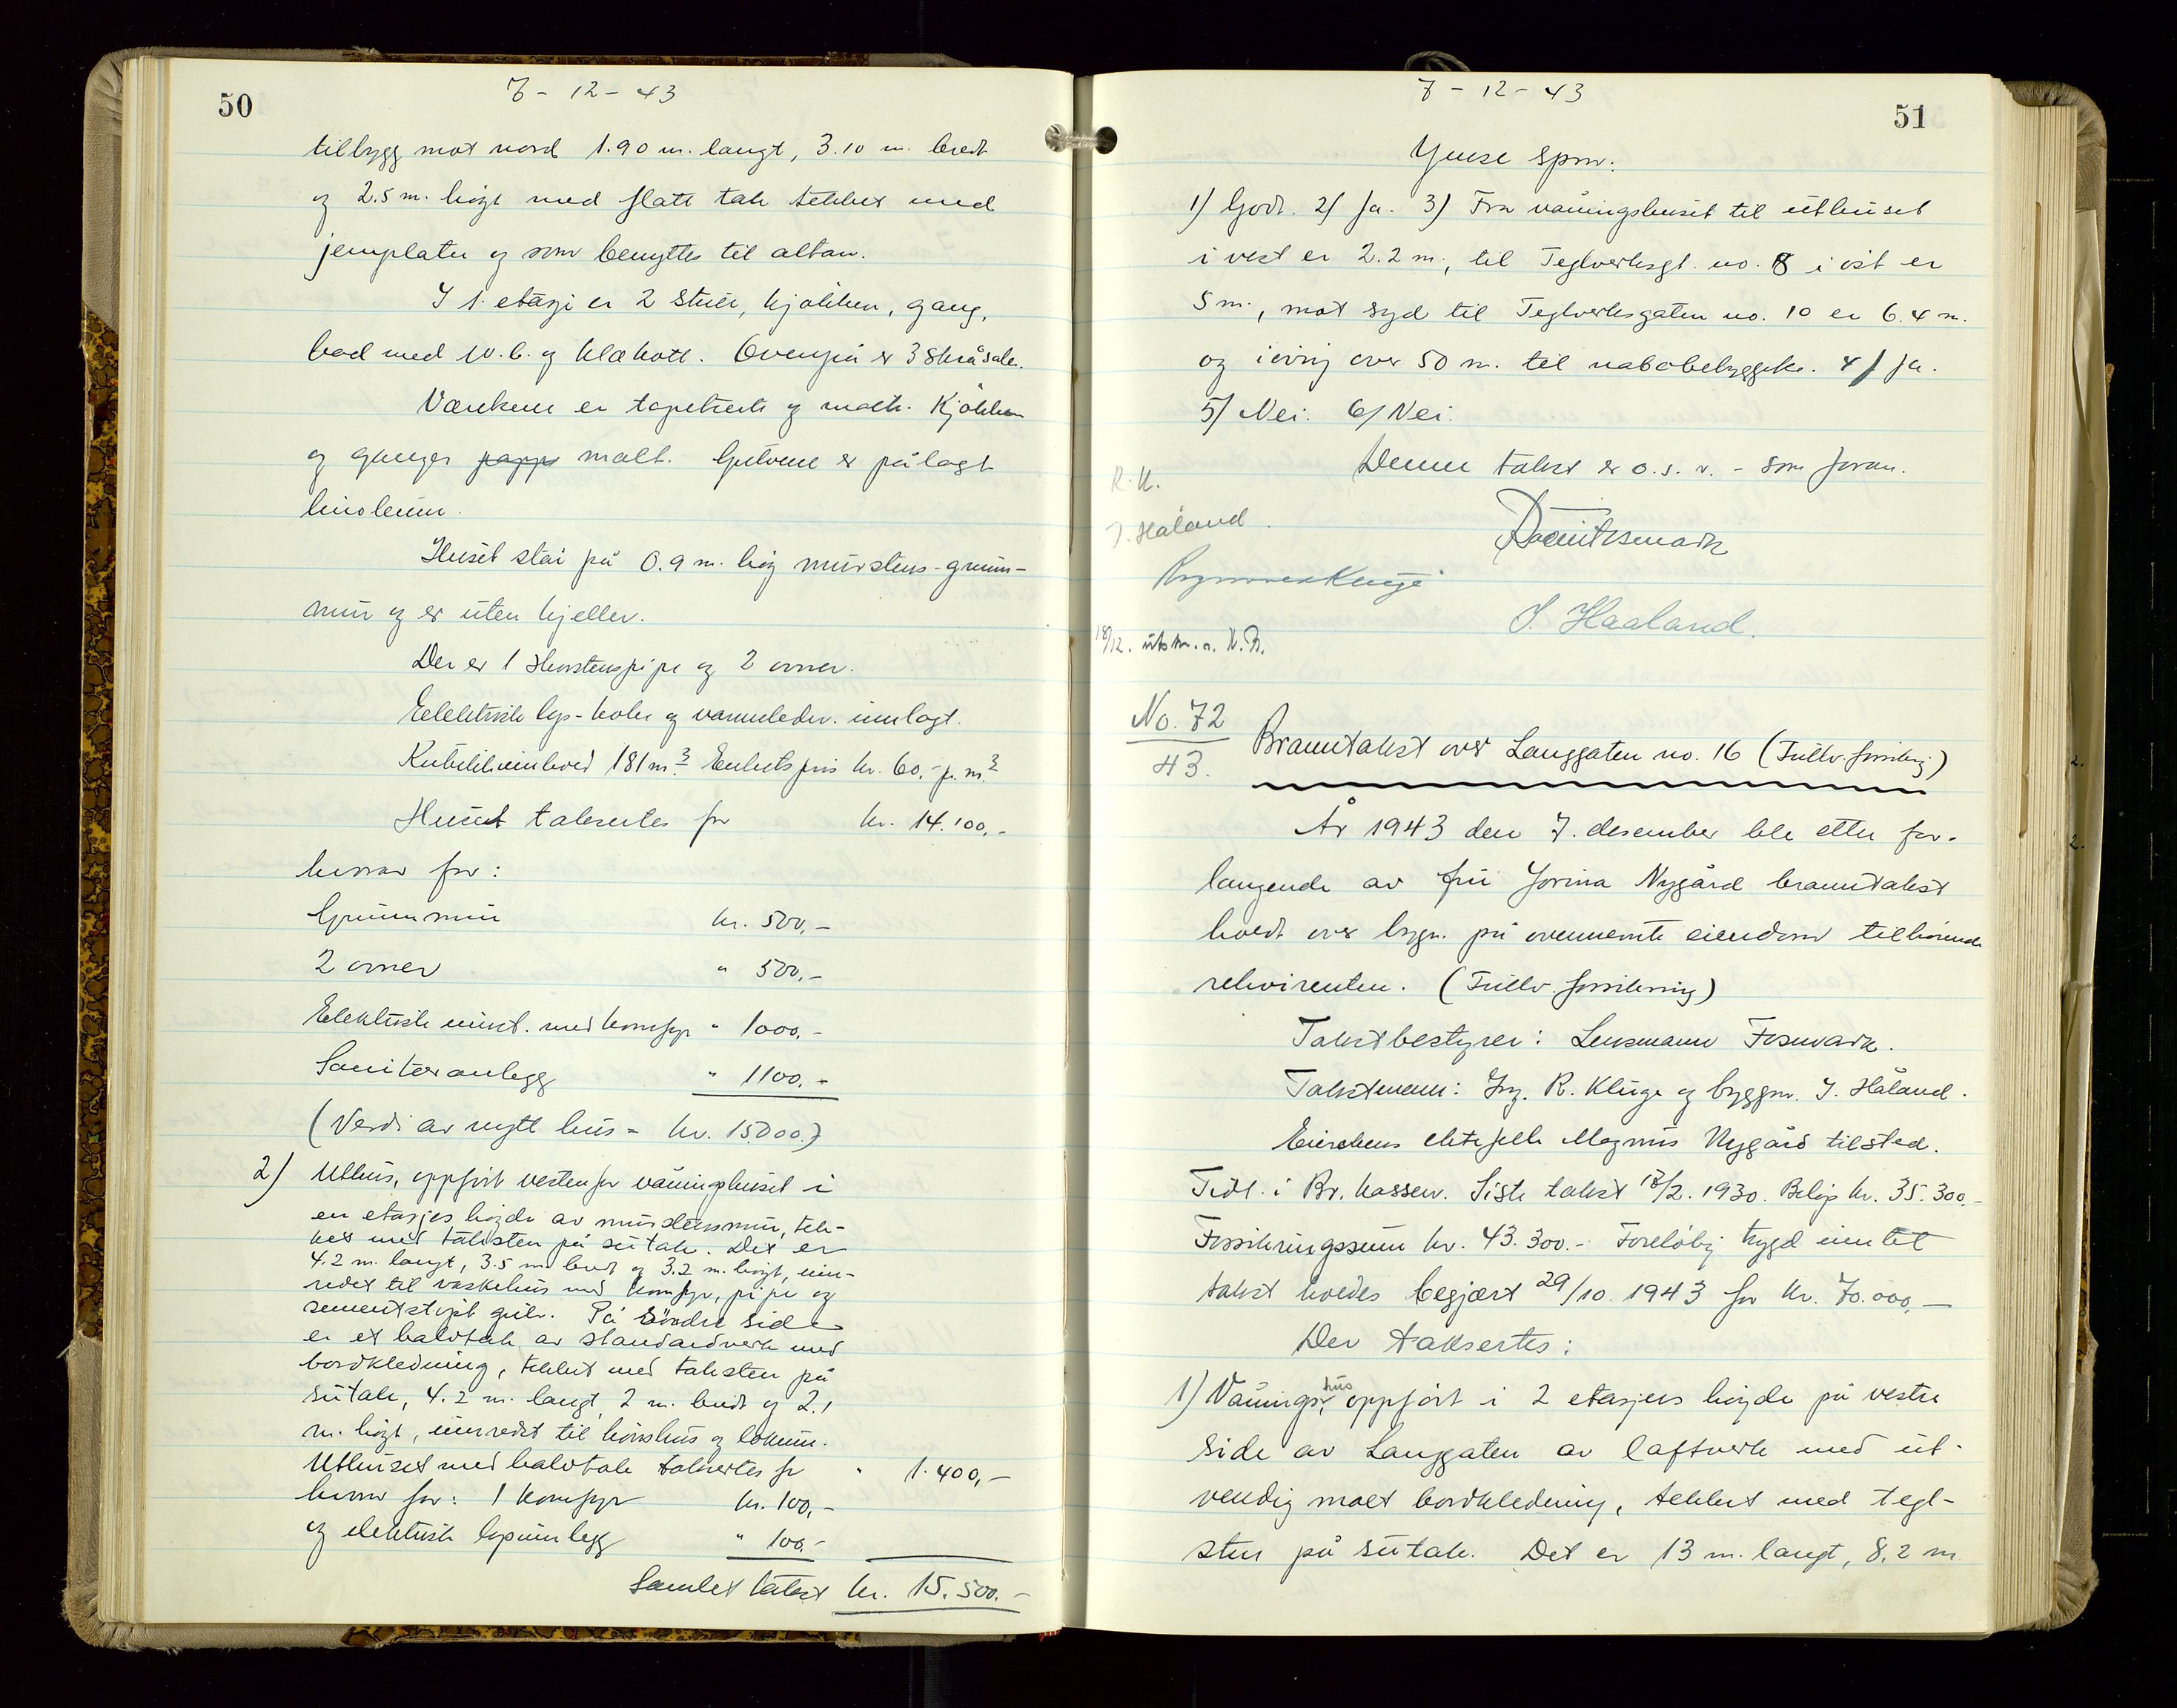 50
7 - 12 - 43
tilbygg mot nord 1.90 m. langt, 3.10 m. bredt
og 2.5 m. högt med flatt tak tekket med
jernplater og som benyttes til altan.
I 1. etasje er 2 stuer, kjökken, gang,
bad med W.C. og klækott. Ovenpå er 3 skråsaler.
Værelsene er tapetserte og malte. Kjökken
og ganger papp malt. Gulvene er pålagt
linoleum.
Huset står på 0.9 m. höy murstens-grunn-
mur og er uten kjeller.
Der er 1 skorstenspipe og 2 ovner.
Elektriske lys-koke og varmeledn. innlagt.
Kubikkinnhold 181 m.3 Enhetspris kr. 60,- p. m.3
Huset takseres for kr. 14.100,-
hvorav for:
Grunnmur kr. 500,-
2 ovner " 500,-
Elektriske innst. med komfyr " 1000,-
Saniteranlegg " 1100,-
(Verdi av nytt hus = kr. 15.000.)
2) Uthus, oppfört vestenfor våningshuset i
en etasjes höyde av murstensmur, tek-
ket med taksten på sutak. Det er
4.2 m. langt, 3.5 m. bredt og 3.2 m. höyt, inn-
redet til vaskehus med komfyr, pipe og
sementstöpt gulv. På söndre side
er et halvtak av standardverk med
bordkledning, tekket med taksten på
sutak, 4.2 m. langt, 2 m. bredt og 2.1
m. höyt, innredet til hönsehus og lokum.
Uthuset med halvtak takseres for " 1.400,-
hvorav for: 1 komfyr kr. 100,-
og elektrisk lysinnlegg " 100,-
Samlet takst kr. 15.500.-
7 - 12 - 43
51
Ymse spm.
1) Godt. 2) Ja. 3) Fra våningshuset til uthuset
i vest er 2.2 m., til Teglverksgt. no. 8 i öst er
5 m., mot syd til Teglverksgaten no. 10 er 6.4 m.
og iövrig over 50 m. til nabobebyggelse. 4) Ja.
5) Nei. 6) Nei.
Denne takst er o.s.v. - som foran.
R.K.
J. Håland.
J. Haaland.
18/12. utskr. s. N.B.
No. 72
43.
Branntakst over Langgaten no. 16 (Fullv. forsikring)
År 1943 den 7. desember ble etter for-
langende av fru Jorina Nygård branntakst
holdt over bygn. på ovennevnte eiendom tilhörende
rekvirenten. (Fullv. forsikring)
Takstbestyrer: Lensmann Fosmark.
Takstmenn: Ing. R. Kluge og byggm. J. Håland.
Eierskens ektefelle Magnus Nygård tilsted.
Tidl. i Br. kassen. Siste takst 18/2. 1930. Belöp kr. 35.300,-
Forsikringssum kr. 43.300.- Forelöbig trygd inntil
takst holdes begjært 29/10. 1943 for kr. 70.000,-
Der takseres:
1) Våningshus, oppfört i 2 etasjers höyde på vestre
side av Langgaten av laftverk med ut-
vendig malt bordkledning, tekket med tegl-
sten på sutak. Det er 13 m. langt, 8.2 m.